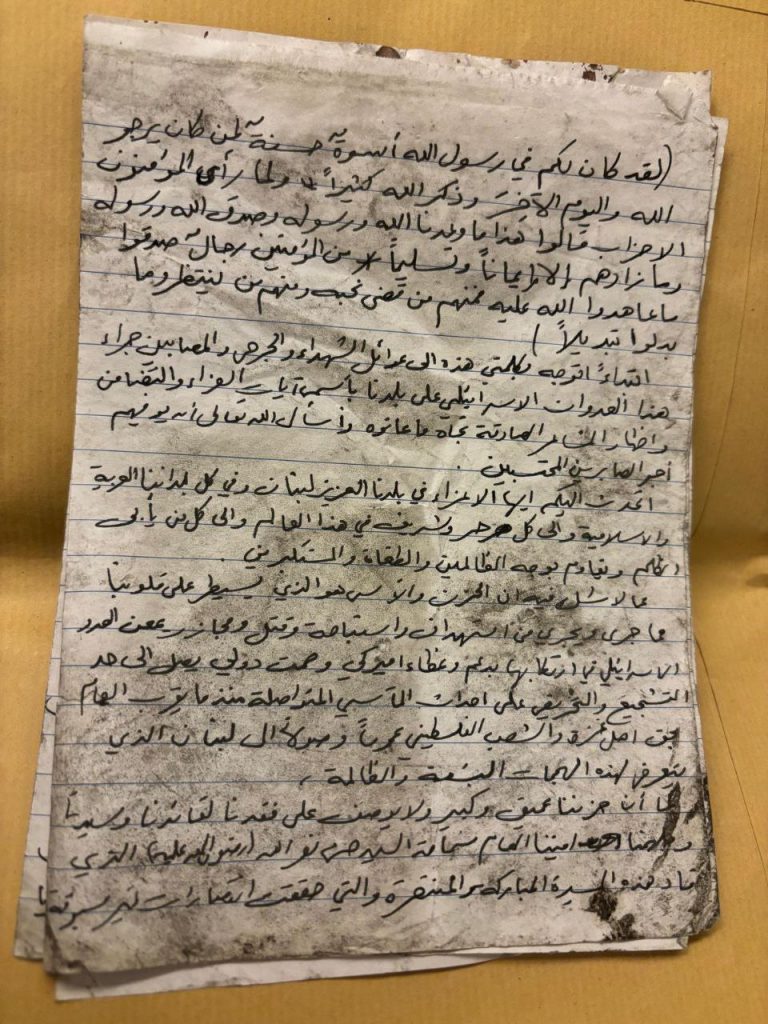 (لقد كان لكم في رسول الله أسوةٌ حسنةٌ لمن كان يرجو
الله واليوم الآخِرَ وذكر الله كثيراً * ولما رأى المؤمنون
الاحزاب قالوا هذا ما وعدنا الله ورسوله وصدق الله ورسوله
وما زادهم إلا إيماناً وتسليماً * من المؤمنين رجالٌ صدقوا
ما عاهدوا الله عليه فمنهم من قضى نحبه ومنهم من ينتظر وما
بدلوا تبديلاً)
ابتداءً اتوجه بكلمتي هذه الى عوائل الشهداء والجرحى والمصابين جراء
هذا العدوان الاسرائيلي على بلدنا بأسمى آيات العزاء والتضامن
واظهار المشاعر الصادقة تجاه ما عانوه وأسأل الله تعالى أن يوفيهم
أجر الصابرين المحتسبين.
اتحدث اليكم ايها الاعزاء في بلدنا العزيز لبنان وفي كل بلداننا العربية
والاسلامية والى كل حر وشريف في هذا العالم والى كل من يأبى
الظلم ويقاوم بوجه الظالمين والطغاة والمستكبرين
مما لا شك فيه ان الحزن والأسى هو الذي يسيطر على قلوبنا
مما جرى ويجري من استهداف واستباحة وقتل ومجازر يمعن العدو
الاسرائيلي في ارتكابها بدعم وغطاء اميركي وصمت دولي يصل الى حد
التشجيع والتحريض على احداث المآسي المتواصلة منذ ما يقرب العام
بحق اهل غزة والشعب الفلسطيني عموماً وصولاً الى لبنان الذي
يتعرض لهذه الهجمات البشعة والظالمة.
كما أن حزننا عميق وكبير ولا يوصف على فقدنا لقائدنا وسيدنا
امينـنا العام سماحة السيد حسن نصر الله (رضوان الله عليه) الذي
قاد هذه المسيرة المباركة والمنتصرة والتي حققت انتصارات غير مسبوقة